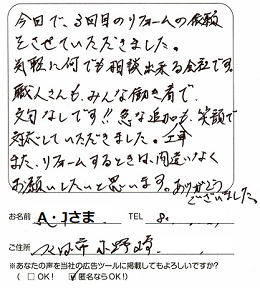 今回で、3回目のリフォームの依頼
をさせていただきました。
気軽に何でも相談出来る会社です。
職人さんも、みんな働き者で、
文句なしです!!急な追加も、笑顔で
対応していただきました。工事
また、リフォームするときは、間違いなく
お願いしたいと思います。ありがとう
ございました。
お名前 A・Jさま TEL 8
ご住所 つくば市 小野崎
※あなたの声を当社の広告ツールに掲載してもよろしいですか?
(□OK! ☑匿名ならOK!)